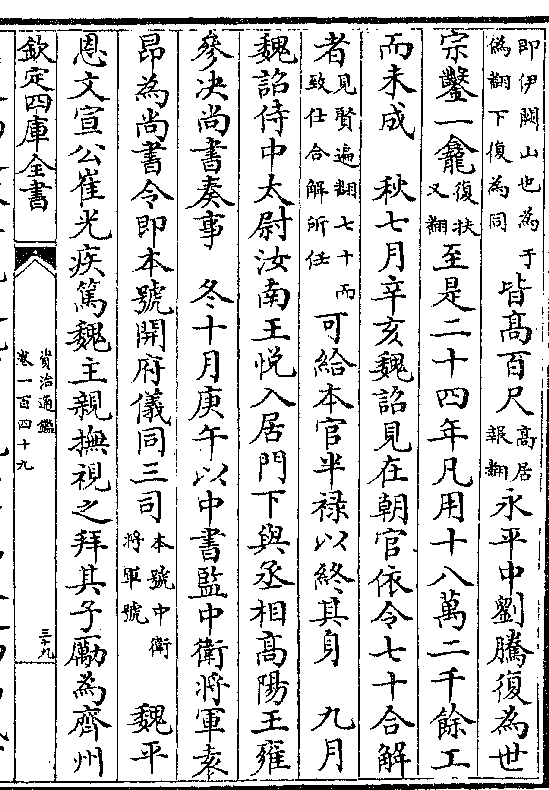 即伊闕山也為于
偽翻下復為同
皆高百尺
高居
報翻
永平中劉騰復為世
宗鑿一龕
復扶
又翻
至是二十四年凡用十八萬二千餘工
而未成　秋七月辛亥魏詔見在朝官依令七十合解
者
見賢遍翻七十而
致仕合解所任
可給本官半禄以終其身　九月
魏詔侍中太尉汝南王悦入居門下與丞相高陽王雍
參决尚書奏事　冬十月庚午以中書監中衛將軍袁
昂為尚書令即本號開府儀同三司
本號中衛
將軍號
魏平
恩文宣公崔光疾篤魏主親撫視之拜其子勵為齊州
欽定四庫全書
資治通鑑
卷一百四十九
三十九